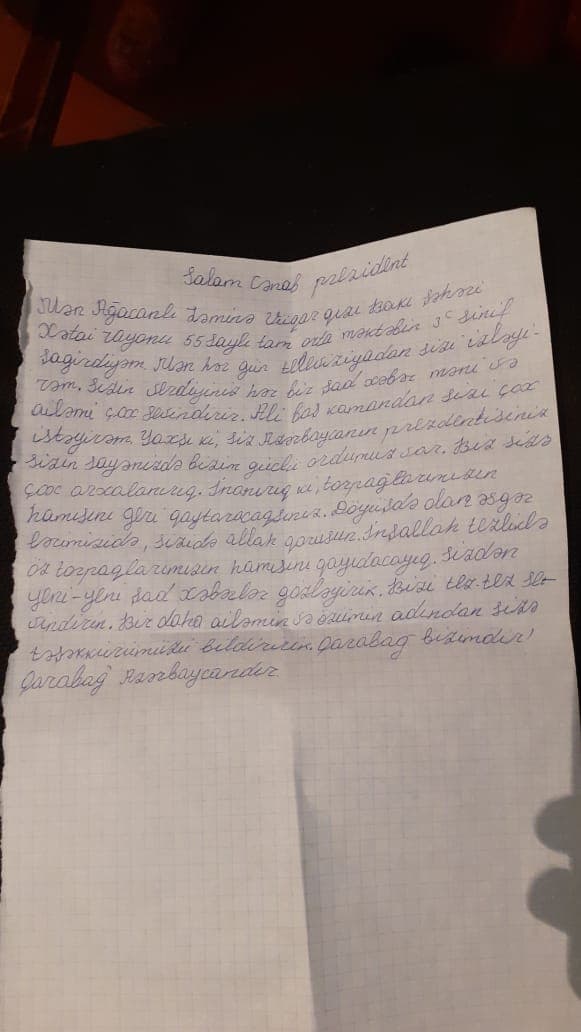 Salam Cənab prezident
Mən Ağacanlı Zəminə Vüqar qızı Bakı şəhəri
Xətai rayonu 55 saylı tam orta məktəbin 3ᶜ sinif
şagirdiyəm. Mən hər gün televiziyadan sizi izləyi-
rəm. Sizin verdiyiniz hər bir şad xəbər məni və
ailəmi çox sevindirir. Ali baş komandan sizi çox
istəyirəm. Yaxşı ki, siz Azərbaycanın prezdentisiniz
Sizin sayənizdə bizim güclü ordumuz var. Biz sizə
çox arxalanırıq. İnanırıq ki, torpağlarımızın
hamısını geri qaytaracağsınız. Döyüşdə olan əsgər
lərimizidə, sizidə allah qorusun. İnşallah tezliklə
öz torpaqlarımızın hamısını qayıdacayıq. Sizdən
yeni-yeni şad xəbərlər gözləyirik. Bizi tez-tez se-
vindirin. Bir daha ailəmin və özümün adından sizə
təşəkkürümüzü bildiririk. Qarabağ bizimdir!
Qarabağ Azərbaycandır.